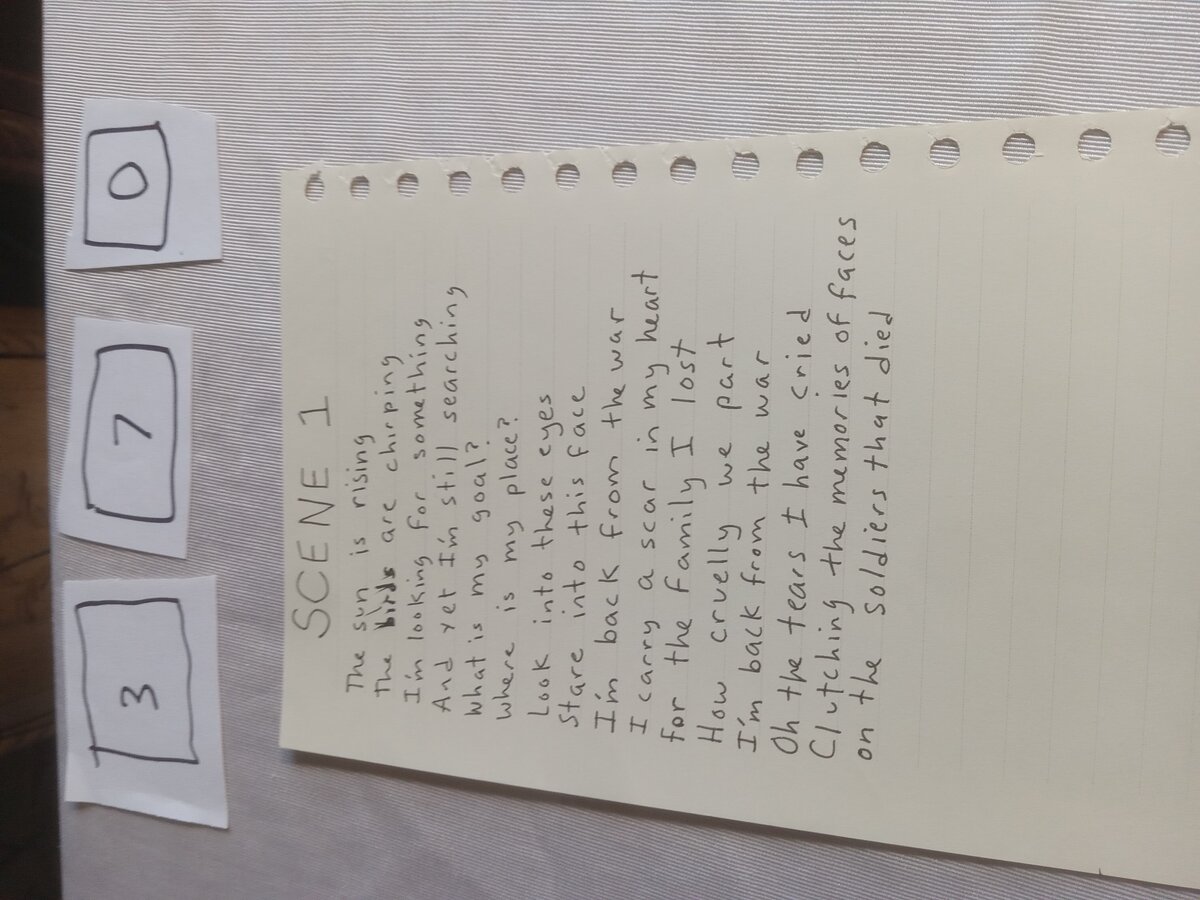 3 7 0
SCENE 1
The sun is rising
The birds are chirping
I'm looking for something
And yet I'm still searching
What is my goal?
Where is my place?
Look into these eyes
Stare into this face
I'm back from the war
I carry a scar in my heart
for the family I lost
How cruelly we part
I'm back from the war
Oh the tears I have cried
Clutching the memories of faces
on the soldiers that died